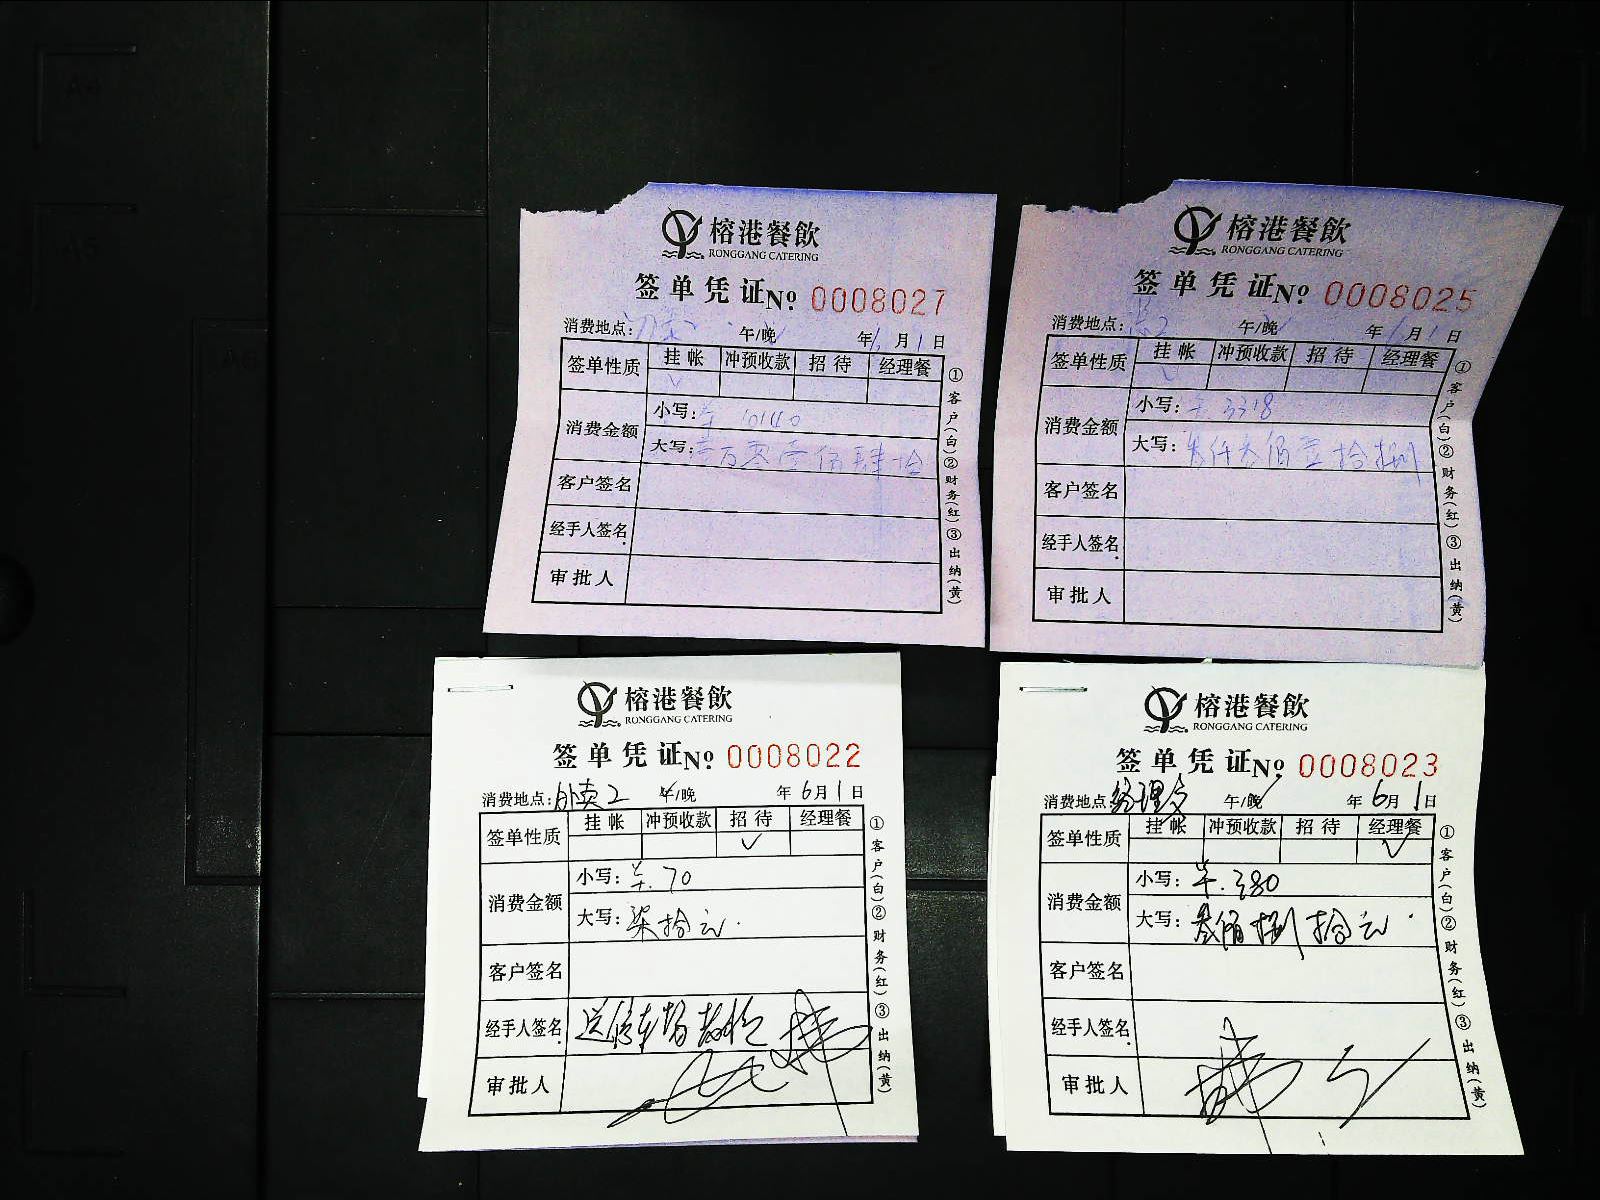 榕港餐飲
RONGGANG CATERING
签单凭证№ 0008027
消费地点: 午/晚 年6月1日
签单性质 挂帐 冲预收款 招待 经理餐
消费金额 小写: 羊 10140
大写: 壹万零壹佰肆拾
客户签名
经手人签名
审批人
①客户(白)②财务(红)③出纳(黄)
榕港餐飲
RONGGANG CATERING
签单凭证№ 0008025
消费地点: 午/晚 年6月1日
签单性质 挂帐 冲预收款 招待 经理餐
消费金额 小写: 羊.3318
大写: 叁仟叁佰壹拾捌
客户签名
经手人签名
审批人
①客户(白)②财务(红)③出纳(黄)
榕港餐飲
RONGGANG CATERING
签单凭证№ 0008022
消费地点: 外卖2 午/晚 年6月1日
签单性质 挂帐 冲预收款 招待 经理餐
消费金额 小写: 羊.70
大写: 柒拾元.
客户签名
经手人签名 送停车场
审批人
①客户(白)②财务(红)③出纳(黄)
榕港餐飲
RONGGANG CATERING
签单凭证№ 0008023
消费地点: 经理餐 午/晚 年6月1日
签单性质 挂帐 冲预收款 招待 经理餐
消费金额 小写: 羊.380
大写: 叁佰捌拾元.
客户签名
经手人签名
审批人
①客户(白)②财务(红)③出纳(黄)